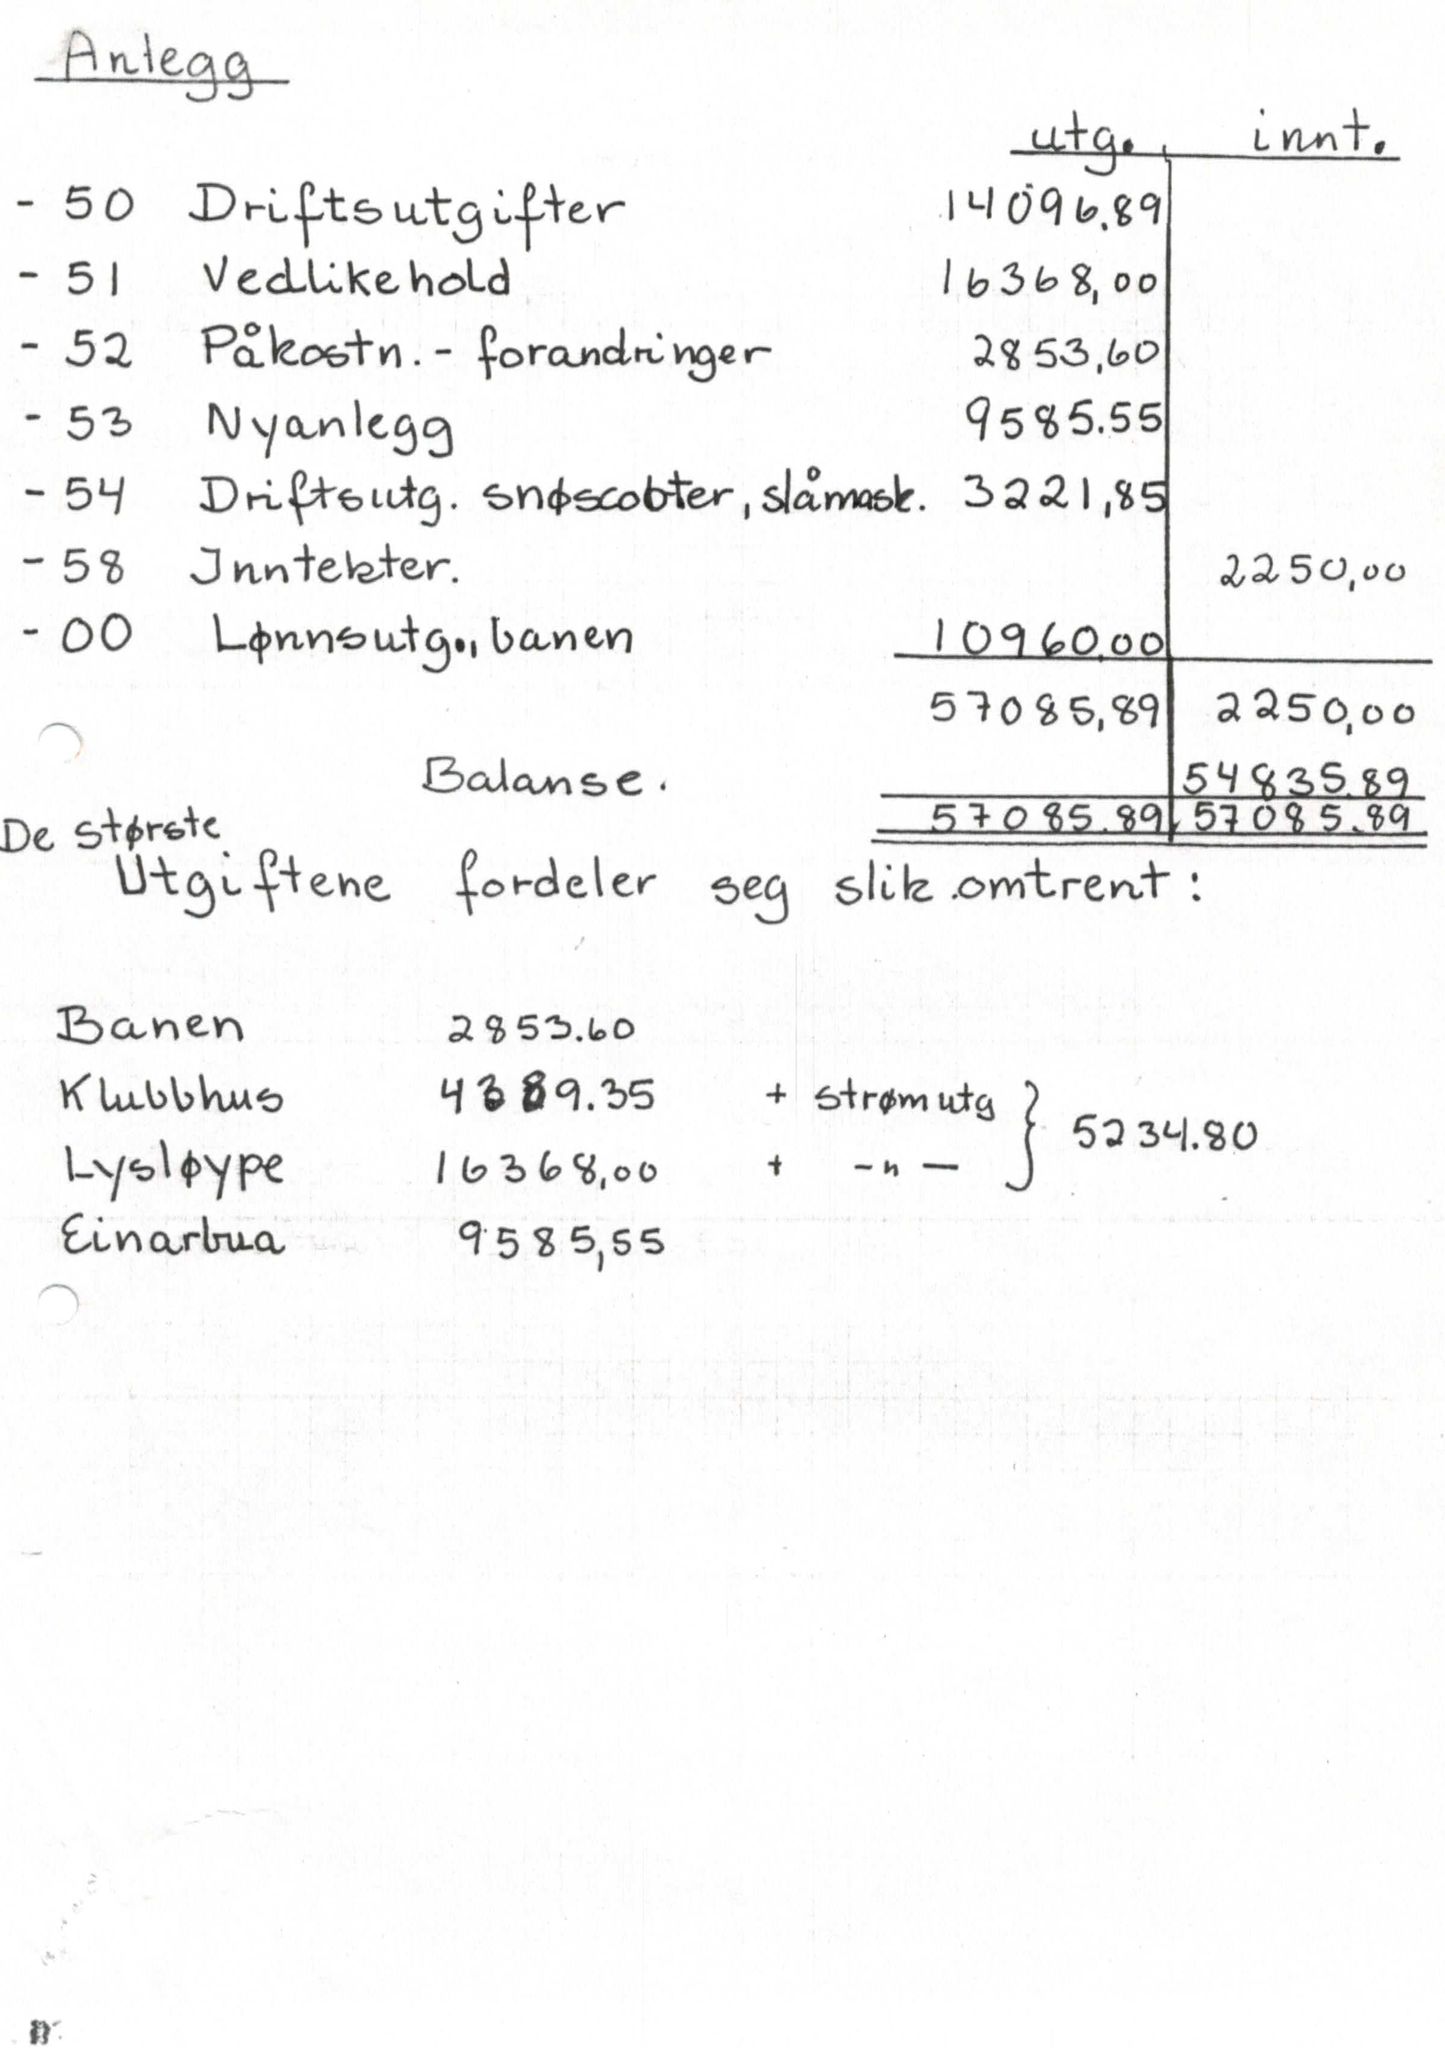 Anlegg
utg. innt.
- 50 Driftsutgifter 14096.89
- 51 Vedlikehold 16368,00
- 52 Påkostn. - forandringer 2853,60
- 53 Nyanlegg 9585.55
- 54 Driftsutg. snøscooter, slåmask. 3221,85
- 58 Inntekter. 2250,00
- 00 Lønnsutg., banen 10960.00
57085,89 2250,00
Balanse. 54835.89
57085.89 57085.89
De største
Utgiftene fordeler seg slik omtrent:
Banen 2853.60
Klubbhus 4389.35 + strømutg } 5234.80
Lysløype 16368,00 + -"-
Einarbua 9585,55